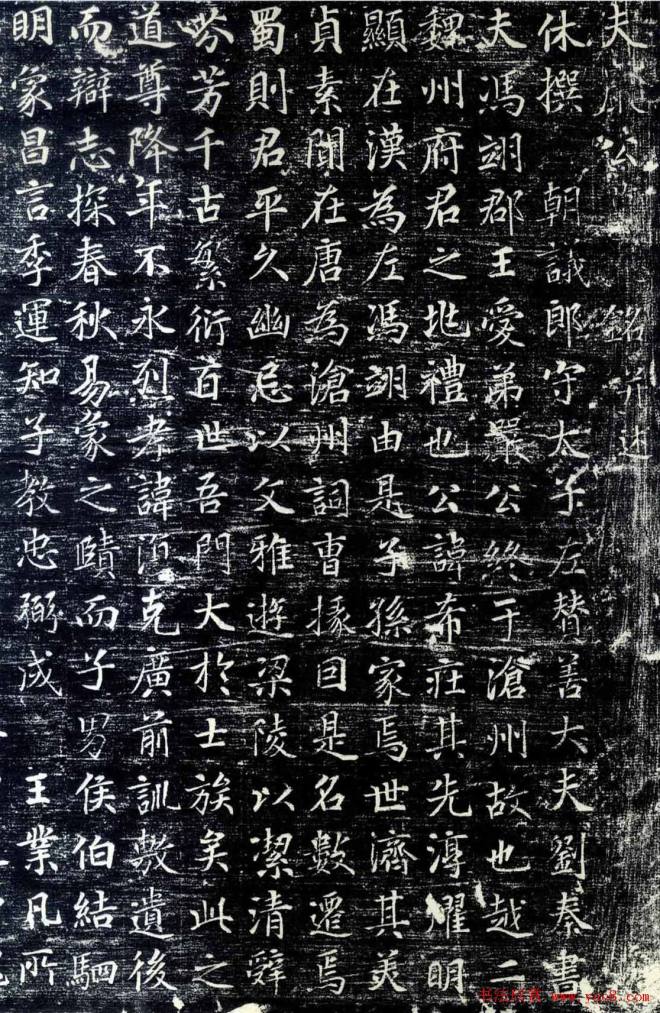 夫嚴公 銘并述
休撰 朝議郎守太子左贊善大夫劉秦書
夫馮翊郡王愛弟嚴公終于滄州故也越二
魏州府君之兆禮也公諱希莊其先淳耀明
顯在漢為左馮翊由是子孫家焉世濟其美
貞素聞在唐為滄州詞曹掾因是名數遷焉
蜀則君平久幽忌以文雅遊梁陵以潔清辭
芬芳千古繁衍百世吾門大於士族矣此之
道尊降年不永烈考諱 克廣前訓敷遺後
而辯志探春秋易象之賾而子男侯伯結駟
明象昌言季運知子教忠弼成 王業凡所
www.yac8.com